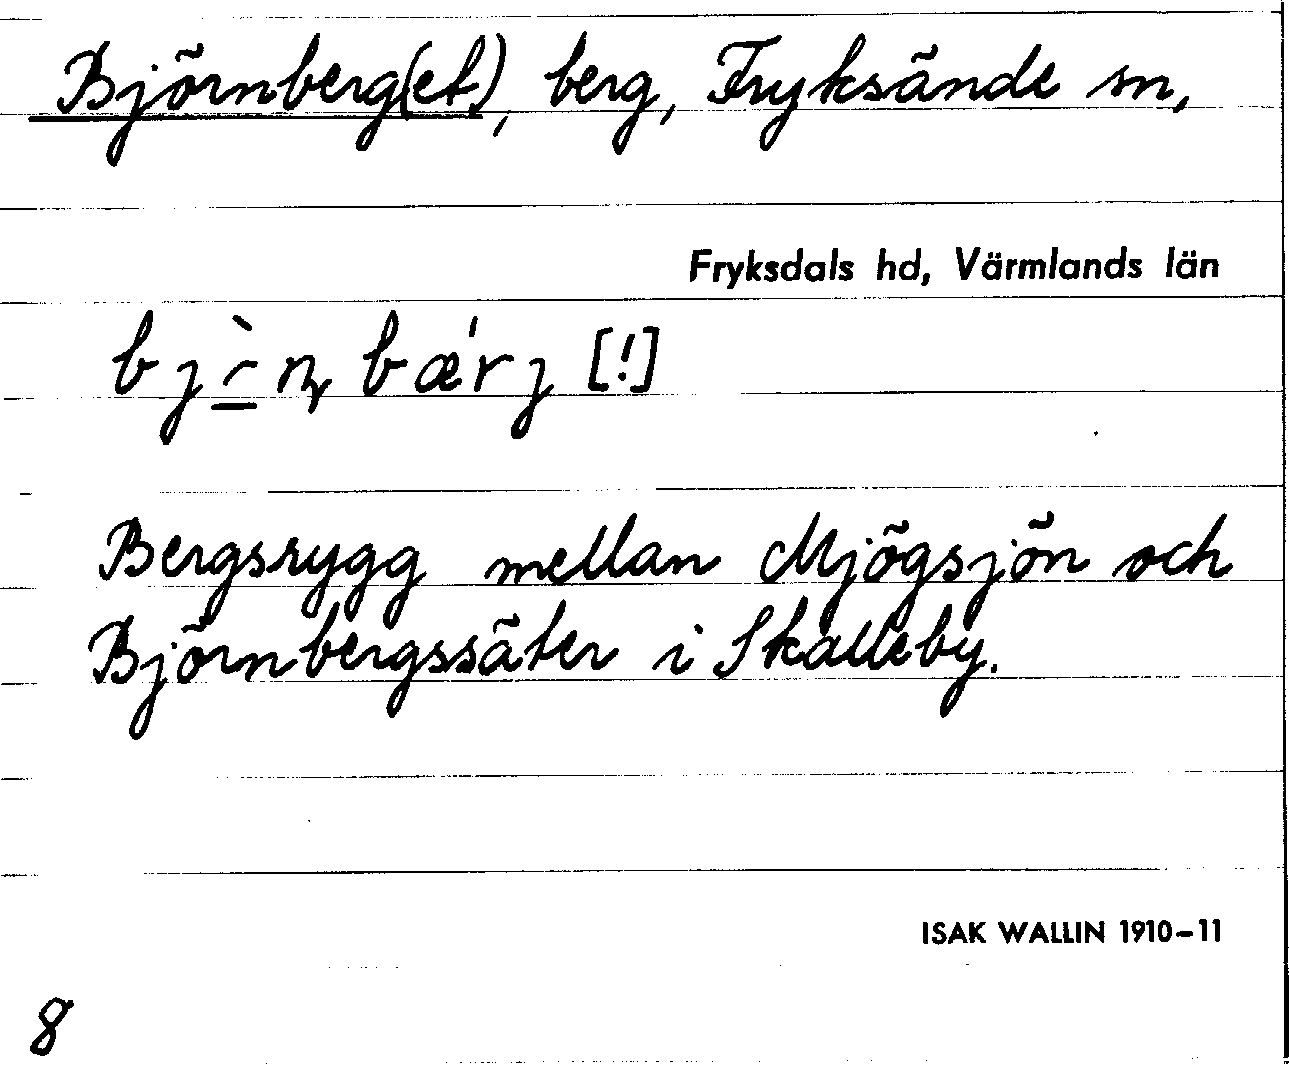 Björnberg(et), berg, Fryksände sn,
Fryksdals hd, Värmlands län
[!]
Bergsrygg mellan Mjögsjön och
Björnbergssäter i Skalleby.
ISAK WALLIN 1910–11
8